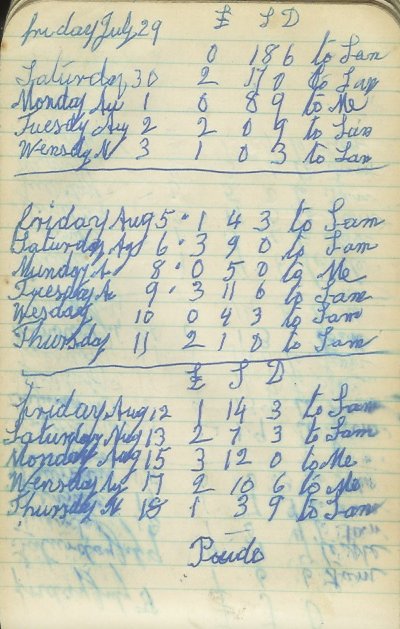 Friday July 29 £ S D
0 18 6 to Sam
Saturday 30 2 17 0 to Sam
Monday Au 1 0 8 9 to Me
Tuesday Aug 2 2 0 9 to Sam
Wensdy A 3 1 0 3 to Sam
Friday Aug 5 · 1 4 3 to Sam
Saturday Ag 6 · 3 9 0 to Sam
Munday A 8 · 0 5 0 to Me
Tuesday Au 9 · 3 11 6 to Sam
Wesday 10 0 4 3 to Sam
Thursday 11 2 1 0 to Sam
£ S D
Friday Aug 12 1 14 3 to Sam
Saturday Aug 13 2 7 3 to Sam
Monday Aug 15 3 12 0 to Me
Wensday Au 17 2 10 6 to Me
Thursdy A 18 1 3 9 to Sam